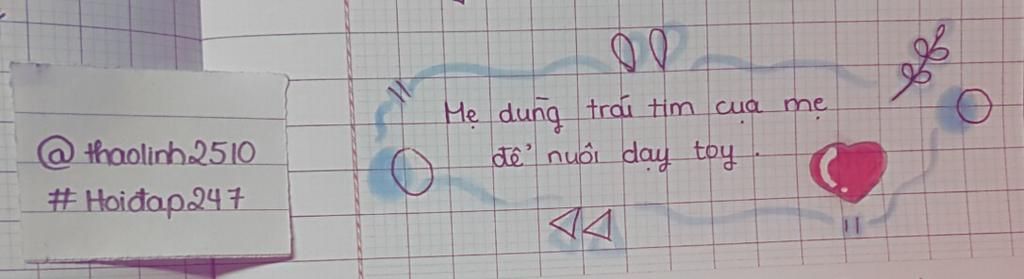 @thaolinh2510
#Hoiđap247
Mẹ dung̃ trái tim cuạ mẹ
để nuôi dạy toy.